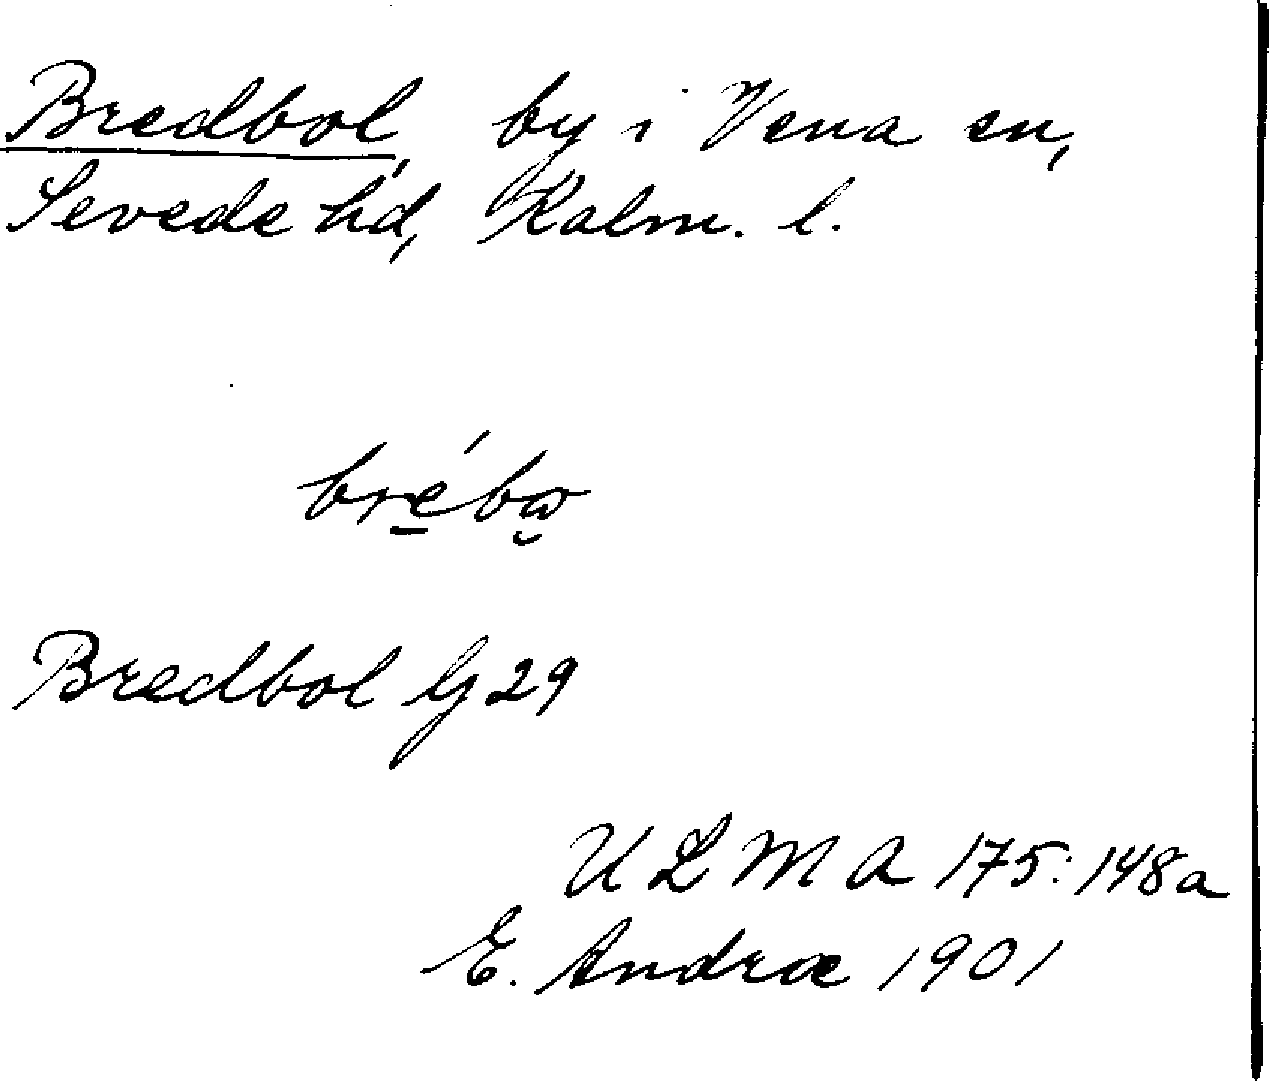 Bredbol, by i Vena sn,
Sevede hd, Kalm. l.
bre̠´bω̮
Bredbol G 29
ULMA 175:148a
E. Andræ 1901